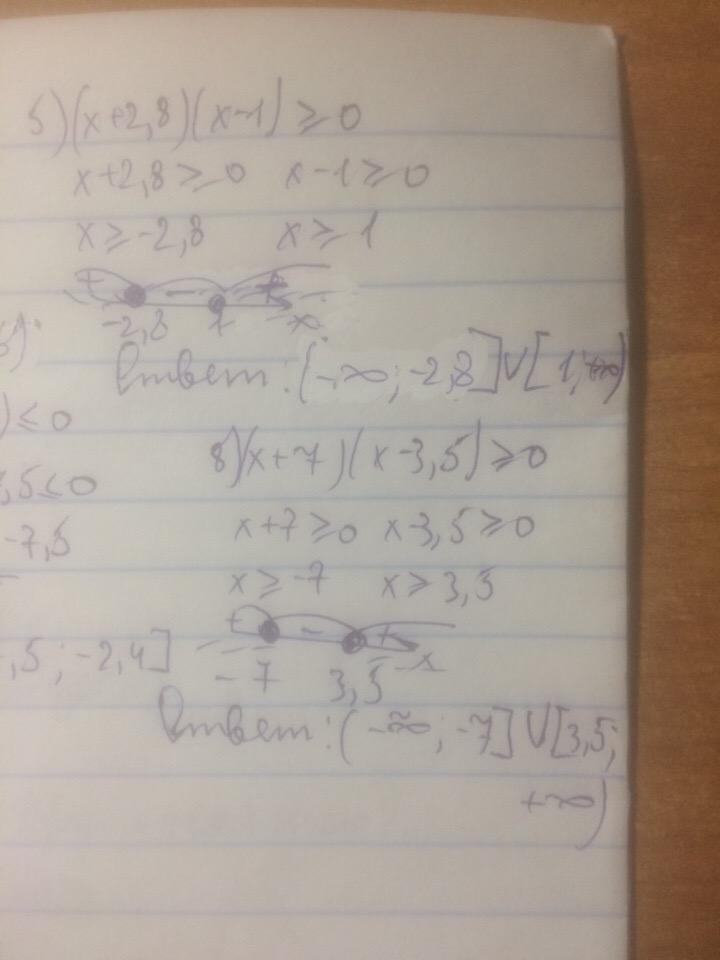 5) (x+2,8)(x-1) ≥ 0
x+2,8 ≥ 0 x-1 ≥ 0
x ≥ -2,8 x ≥ 1
+ - +
-2,8 1 x
Ответ: (-∞; -2,8] ∪ [1; +∞)
) ≤ 0
,5 ≤ 0
-7,5
,5; -2,4]
8) (x+7)(x-3,5) ≥ 0
x+7 ≥ 0 x-3,5 ≥ 0
x ≥ -7 x ≥ 3,5
+ - +
-7 3,5 x
Ответ: (-∞; -7] ∪ [3,5;
+∞)